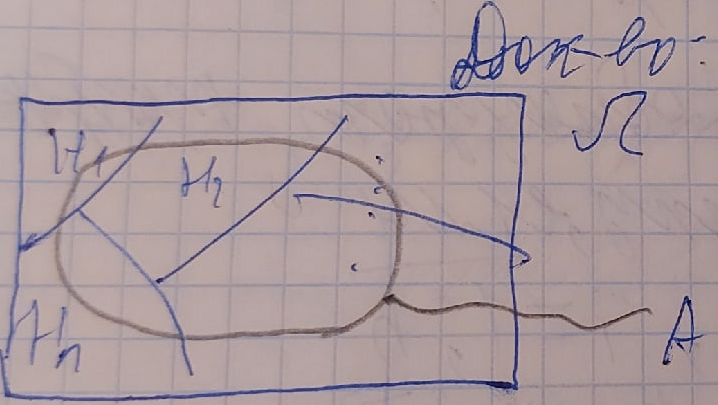 Док-во:
Ω
H₁
H₂
Hₙ
A